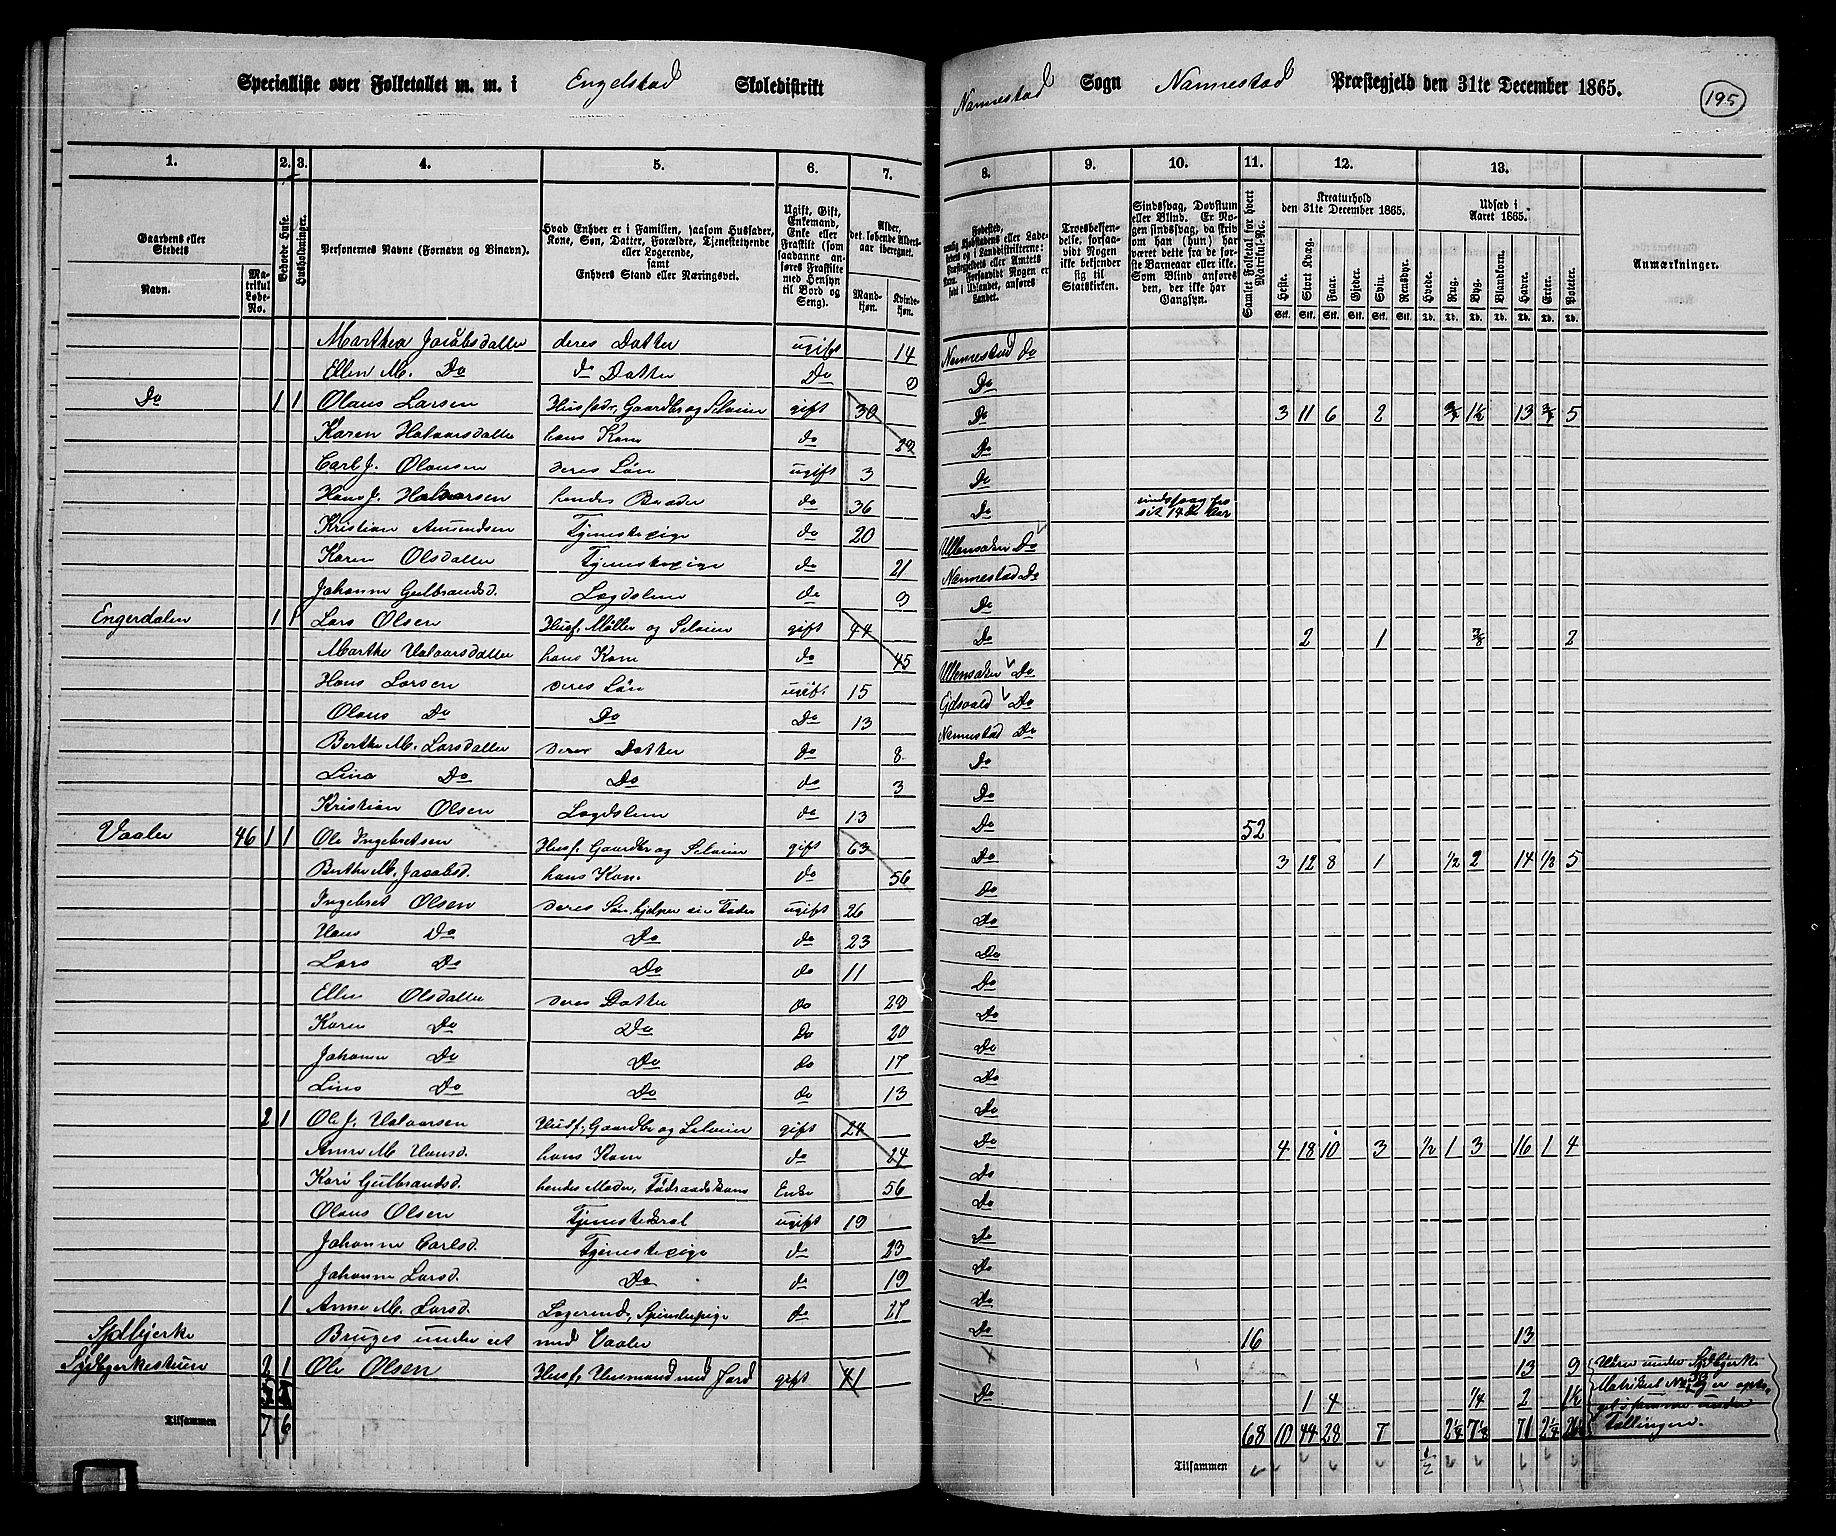 Specialliste over Folketallet m. m. i Engelstad Skoledistrikt Nannestad Sogn Nannestad Præstegjeld den 31te December 1865. 195
1. 2. 3. 4. 5. 6. 7. 8. 9. 10. 11. 12. 13.
Gaardens eller Stedets Navn. Matrikul Løbe-No. Beboede Huse. Husholdninger. Personernes Navne (Fornavn og Binavn).
Hvad Enhver er i Familien, saasom Husfader, Kone, Søn, Datter, Forældre, Tjenestetyende eller Logerende, samt Enhvers Stand eller Næringsvei.
Ugift, Gift, Enkemand, Enke eller Fraskilt (som saadanne anføres Fraskilte med Hensyn til Bord og Seng).
Alder, det løbende Aldersaar iberegnet. Mandkjøn. Kvindekjøn.
Troesbekjendelse, forsaavidt Nogen ikke bekjender sig til Statskirken.
Sindssvag, Døvstum eller Blind. Er Nogen sindssvag, da skriv om han (hun) har været dette fra de første Barneaar eller ikke. Som Blind anføres den, der ikke har Gangsyn.
Samlet Folketal for hvert Matrikul-No.
Kreaturhold den 31te December 1865. Heste. Stort Kvæg. Faar. Gjeder. Sviin. Rensdyr.
Udsæd i Aaret 1865. Hvede. Rug. Byg. Blandkorn. Havre. Erter. Poteter.
Anmærkninger.
Marthea Jacobsdatter deres Datter ugift 14 Nannestad Do
Ellen M. Do do Datter Do 9 Do
Do 1 1 Olaus Larsen Husfader, Gaardbr og Selveier gift 30 Do 3 11 6 2 3/4 1 1/2 13 3/4 5
Karen Halvorsdatter hans Kone do 29 Do
Carl J. Olausen deres Søn ugift 3 Do
Hans J. Halvorsen hendes Broder do 36 Do
Kristian Amundsen do 20 Ullensaker Do
Karen Olsdatter Tjenestepige do 21 Nannestad Do
Johanne Gulbrandsd. Lægdslem do 9 Do
Engerdalen 1 1 Lars Olsen Husf. Møller og Selveier gift 44 Do 2 1 2
Marthe Halvorsdatter hans Kone do 45 Ullensaker Do
Hans Larsen deres Søn ugift. 15 Eidsvold Do
Olaus Do Do Do 13 Nannestad Do
Berthe M. Larsdatter deres Datter do 8 Do
Lina Do Do do 3 Do
Kristian Olsen Lægdslem do 13 Do 52
Vaaler 46 1 1 Ole Ingebretsen Husf. Gaardbr og Selveier gift 63 Do 3 12 8 1 1/2 2 14 1/2 5
Berthe M. Jacobsd. hans Kone do 56 Do
Ingebret Olsen deres Søn, hjelper sin Fader ugift 26 Do
Hans Do Do do 23 Do
Lars Do Do do 11 Do
Ellen Olsdatter deres Datter do 29 Do
Karen Do Do Do 20 Do
Johanne Do Do do 17 Do
Lina Do Do do 13 Do
2 1 Ole J. Halvorsen Husf. Gaardbr og Selveier gift 24 Do 4 18 10 3 1/2 1 3 16 1 4
Anne M. Hansd. hans Kone do 24 Do
Kari Gulbrandsd. hendes Moder, Føderaadskone Enke 56 Do
Olaus Olsen Tjenestekarl ugift 19 Do
Johanne Carlsd. Tjenestepige do 23 Do
Johanne Larsd. Do do 19 Do
1 Anne M. Larsd. Logerende, Spinderpige do 27 Do 16
Sydbjerke Bruges under et med Vaaler 13 9
Sydbjerkestuen 2 1 Ole Olsen Husf. Husmand med Jord gift 41 Do 1 4 1/4 2 1 1/2
Tilsammen 7 6
68 10 44 28 7 71
Tilsammen